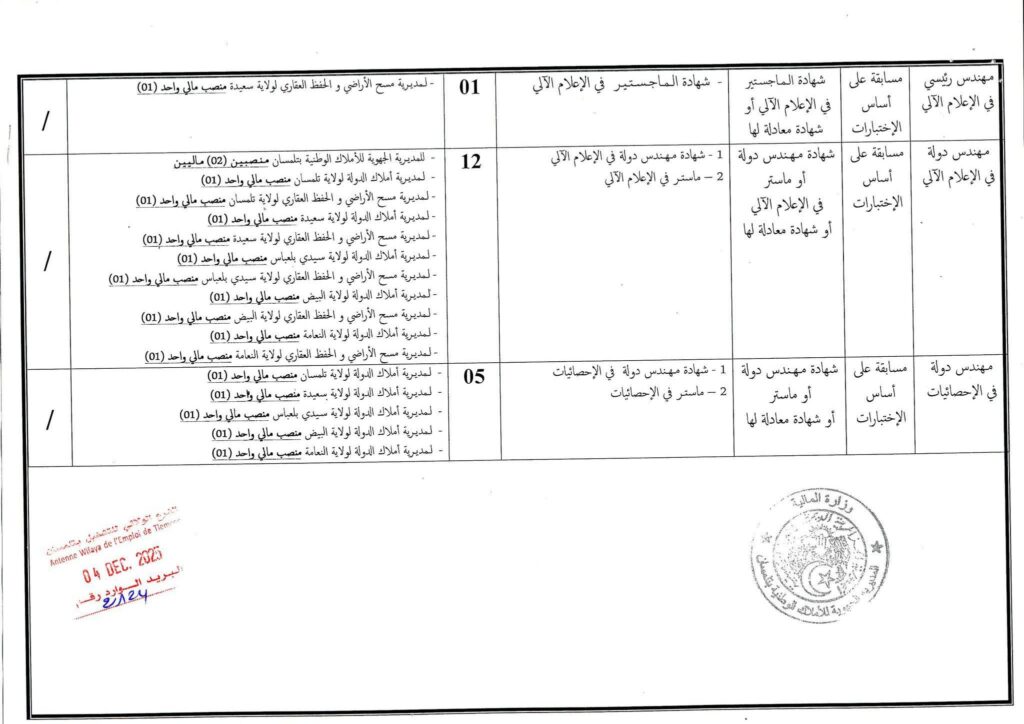 مهندس رئيسي
في الإعلام الآلي
مسابقة على
أساس
الإختبارات
شهادة الماجستير
في الإعلام الآلي أو
شهادة معادلة لها
- شهادة الماجستير في الإعلام الآلي
01
- لمديرية مسح الأراضي و الحفظ العقاري لولاية سعيدة منصب مالي واحد (01)
/
مهندس دولة
في الإعلام الآلي
مسابقة على
أساس
الإختبارات
شهادة مهندس دولة
أو ماستر
في الإعلام الآلي
أو شهادة معادلة لها
1 - شهادة مهندس دولة في الإعلام الآلي
2 – ماستر في الإعلام الآلي
12
- للمديرية الجهوية للأملاك الوطنية بتلمسان منصبين (02) ماليين
- لمديرية أملاك الدولة لولاية تلمسان منصب مالي واحد (01)
- لمديرية مسح الأراضي و الحفظ العقاري لولاية تلمسان منصب مالي واحد (01)
- لمديرية أملاك الدولة لولاية سعيدة منصب مالي واحد (01)
- لمديرية مسح الأراضي و الحفظ العقاري لولاية سعيدة منصب مالي واحد (01)
- لمديرية أملاك الدولة لولاية سيدي بلعباس منصب مالي واحد (01)
- لمديرية مسح الأراضي و الحفظ العقاري لولاية سيدي بلعباس منصب مالي واحد (01)
- لمديرية أملاك الدولة لولاية البيض منصب مالي واحد (01)
- لمديرية مسح الأراضي و الحفظ العقاري لولاية البيض منصب مالي واحد (01)
- لمديرية أملاك الدولة لولاية النعامة منصب مالي واحد (01)
- لمديرية مسح الأراضي و الحفظ العقاري لولاية النعامة منصب مالي واحد (01)
/
مهندس دولة
في الإحصائيات
مسابقة على
أساس
الإختبارات
شهادة مهندس دولة
أو ماستر
أو شهادة معادلة لها
1 - شهادة مهندس دولة في الإحصائيات
2 – ماستر في الإحصائيات
05
- لمديرية أملاك الدولة لولاية تلمسان منصب مالي واحد (01)
- لمديرية أملاك الدولة لولاية سعيدة منصب مالي واحد (01)
- لمديرية أملاك الدولة لولاية سيدي بلعباس منصب مالي واحد (01)
- لمديرية أملاك الدولة لولاية البيض منصب مالي واحد (01)
- لمديرية أملاك الدولة لولاية النعامة منصب مالي واحد (01)
/
وزارة المالية
المديرية الجهوية للأملاك الوطنية بتلمسان
الفرع الولائي للتشغيل بتلمسان
Antenne Wilaya de l'Emploi de Tlemcen
04 DEC. 2025
البريد الوارد رقم